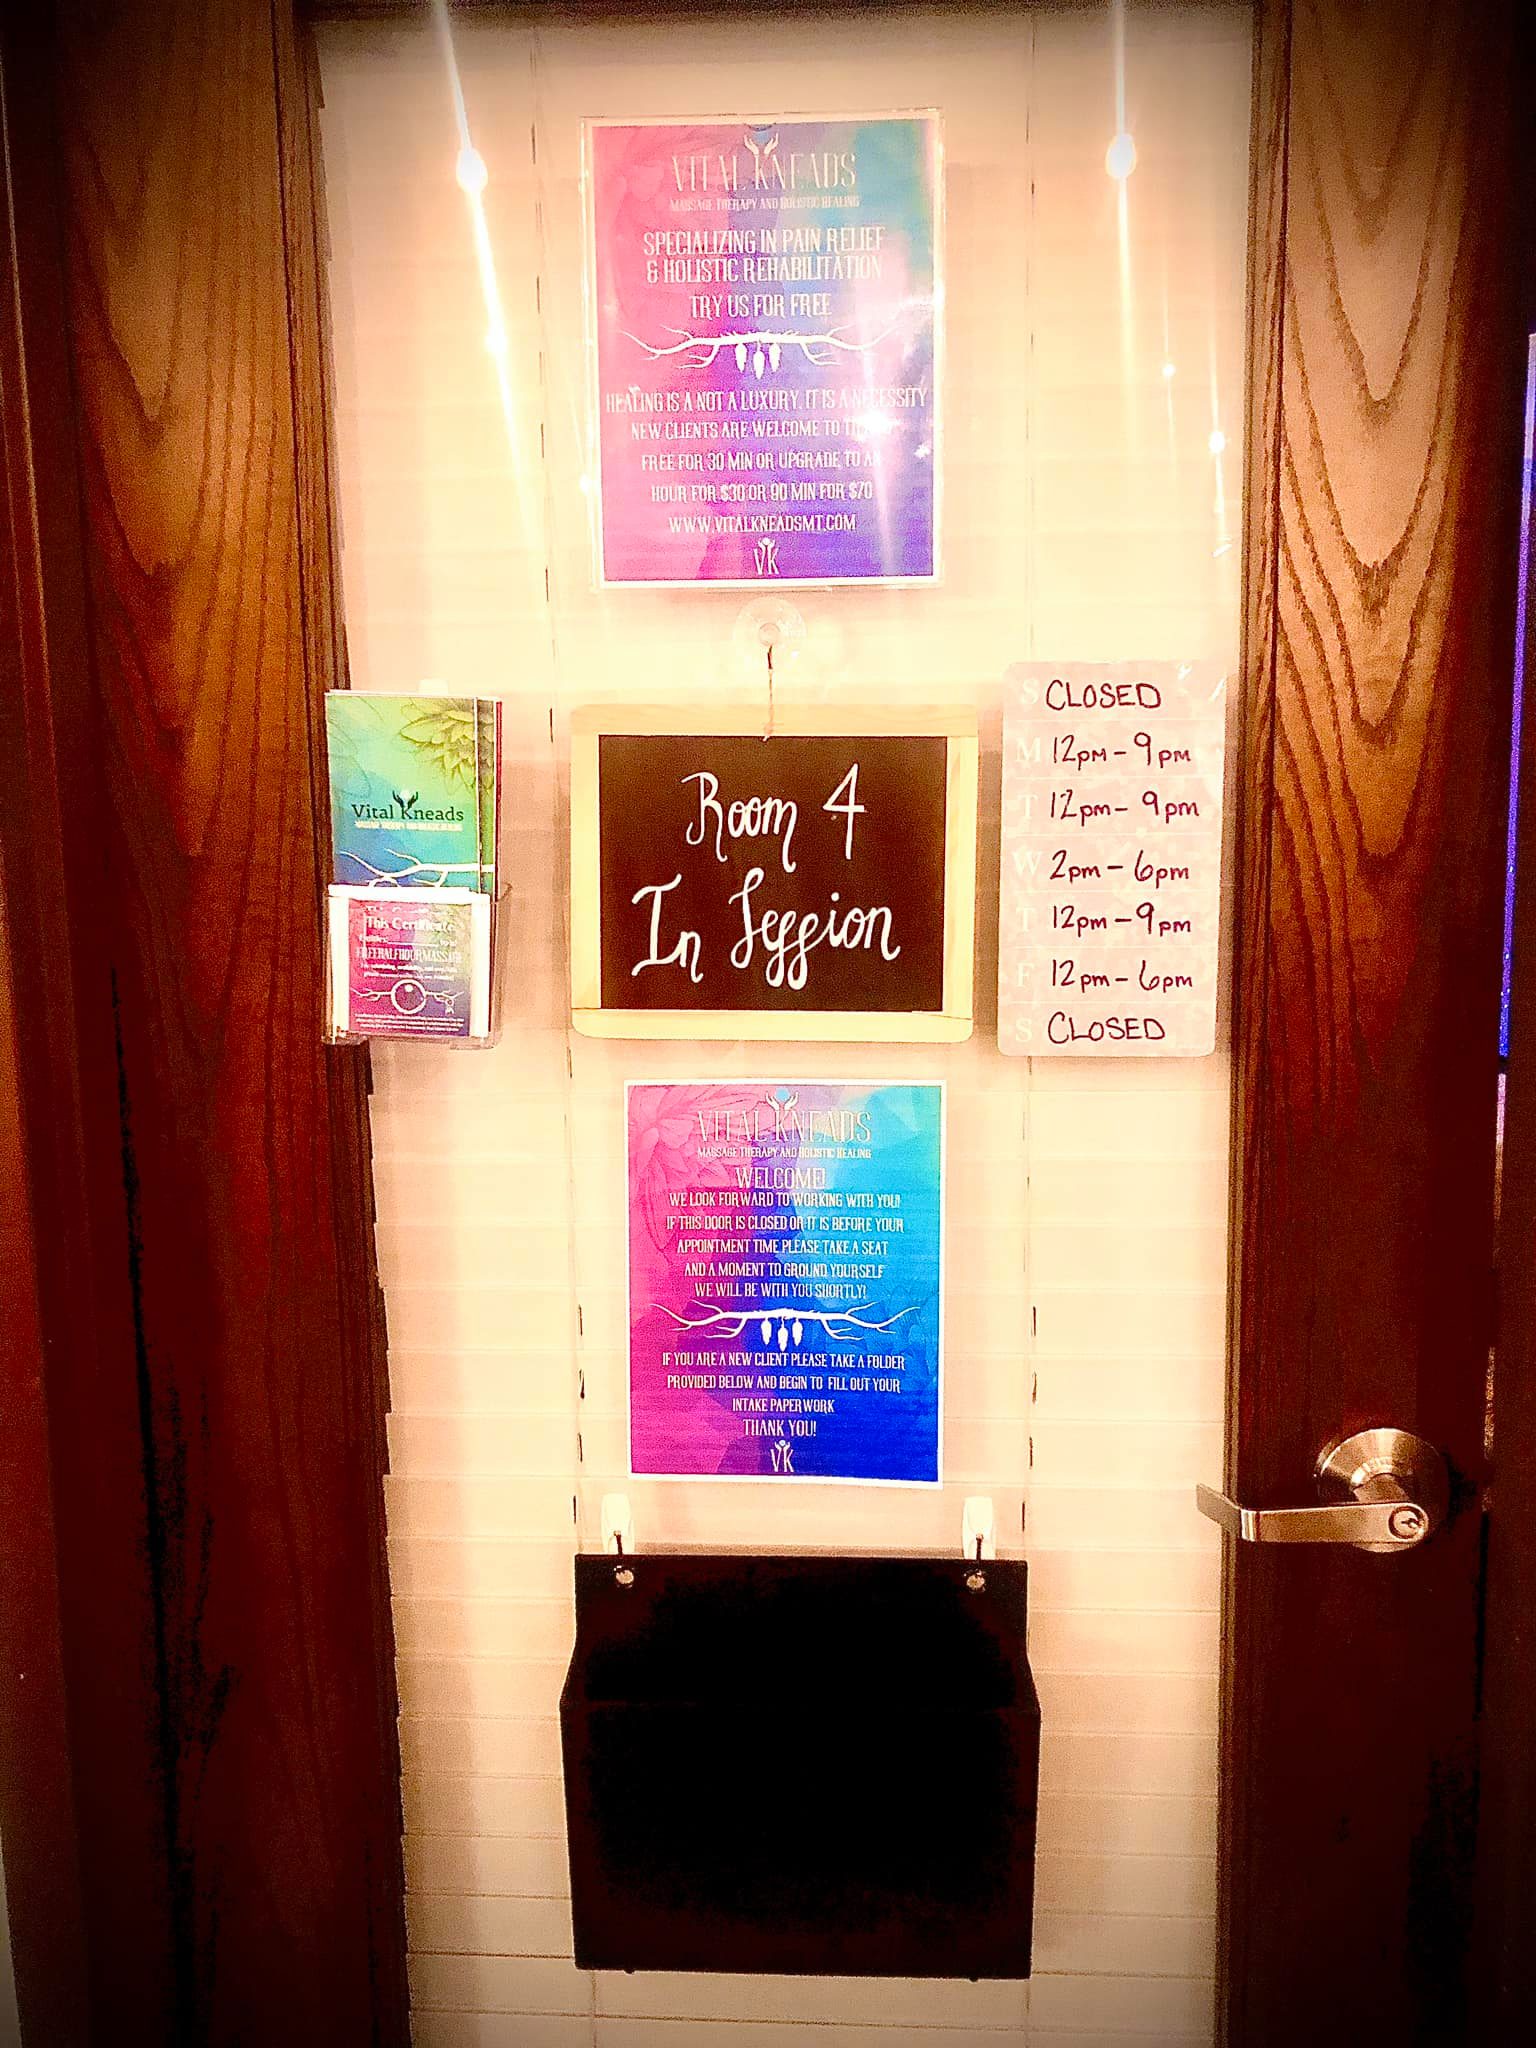 VITAL KNEADS
MASSAGE THERAPY AND HOLISTIC HEALING
SPECIALIZING IN PAIN RELIEF
& HOLISTIC REHABILITATION
TRY US FOR FREE
HEALING IS A NOT A LUXURY, IT IS A NECESSITY
NEW CLIENTS ARE WELCOME TO
FREE FOR 30 MIN OR UPGRADE TO AN
HOUR FOR $30 OR 90 MIN FOR $70
WWW.VITALKNEADSMT.COM
VK
Vital Kneads
MASSAGE THERAPY AND HOLISTIC HEALING
This Certificate
FREE HALF HOUR MASSAGE
Room 4
In Session
S CLOSED
M 12pm - 9pm
T 12pm - 9pm
W 2pm - 6pm
T 12pm - 9pm
F 12pm - 6pm
S CLOSED
VITAL KNEADS
MASSAGE THERAPY AND HOLISTIC HEALING
WELCOME!
WE LOOK FORWARD TO WORKING WITH YOU!
IF THIS DOOR IS CLOSED OR IT IS BEFORE YOUR
APPOINTMENT TIME PLEASE TAKE A SEAT
AND A MOMENT TO GROUND YOURSELF
WE WILL BE WITH YOU SHORTLY!
IF YOU ARE A NEW CLIENT PLEASE TAKE A FOLDER
PROVIDED BELOW AND BEGIN TO FILL OUT YOUR
INTAKE PAPERWORK
THANK YOU!
VK